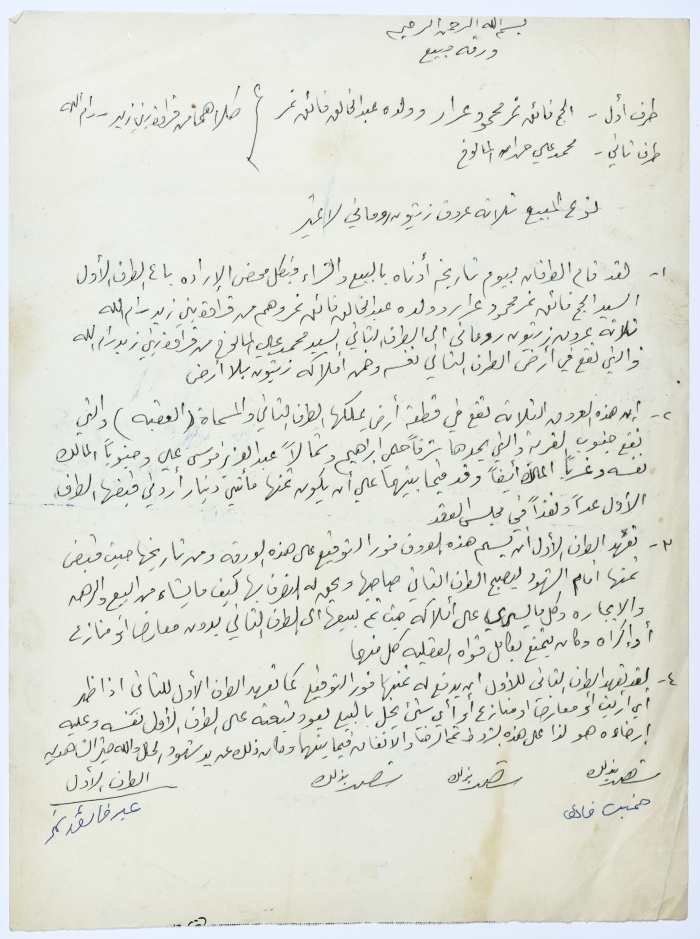 بسم الله الرحمن الرحيم
ورقة مبيع
طرف أول - الحج فائق نمر محمود عرار وولده عبد الخالق فائق نمر } كلاهما من قراوة بني زيد - رام الله
طرف ثاني - محمد علي المالوخ
نوع المبيع ثلاثة عروق زيتون روماني لا غير
١- لقد قام الطرفان بيوم تاريخه أدناه بالبيع والشراء وبكل محض الإرادة باع الطرف الأول
السيد الحج فائق نمر محمود عرار وولده عبد الخالق فائق نمر وهم من قراوة بني زيد رام الله
ثلاثة عروق زيتون روماني الى الطرف الثاني السيد محمد علي المالوخ من قراوة بني زيد رام الله
والتي تقع في أرض الطرف الثاني نفسه وضمن أملاكه زيتون بلا أرض
٢- إن هذه العروق الثلاثة تقع في قطعة أرض يملكها الطرف الثاني والمسماة (العقبه) والتي
تقع جنوب القرية والتي يحدها شرقاً علي ابراهيم وشمالاً عبد العزيز موسى علي وجنوباً المالك
نفسه وغرباً المالك أيضاً وقد فيما بينهما على أن يكون ثمنها مائتي دينار أردني قبضها الطرف
الأول عداً ونقداً في مجلس العقد
٣- تعهد الطرف الأول أن يسلم هذه العروق فور التوقيع على هذه الورقة ومن تاريخها حيث قبض
ثمنها أمام الشهود ليصبح الطرف الثاني صاحبها ويحق له التصرف بها كيف ما يشاء من البيع والرهن
والايجاره وكل ما يسري على أملاكه حيث تم بيعها الى الطرف الثاني بدون معارض أو منازع
أو إكراه وكان يتمتع بكامل قواه العقليه كل منهما
٤- لقد تعهد الطرف الثاني للأول أن يدفع له ثمنها فور التوقيع كما تعهد الطرف الأول للثاني اذا ظهر
أي أو معارض أو منازع أو أي شيء يخل بالبيع يعود تبعته على الطرف الأول نفسه وعليه
إرضاءه هو لذا على هذه الشروط تم الرضا والاتفاق فيما بينهما وكان ذلك عن يد شهود الحال والله خير الشاهدين
شهد بذلك شهد بذلك شهد بذلك الطرف الأول
عبد خالق نمر